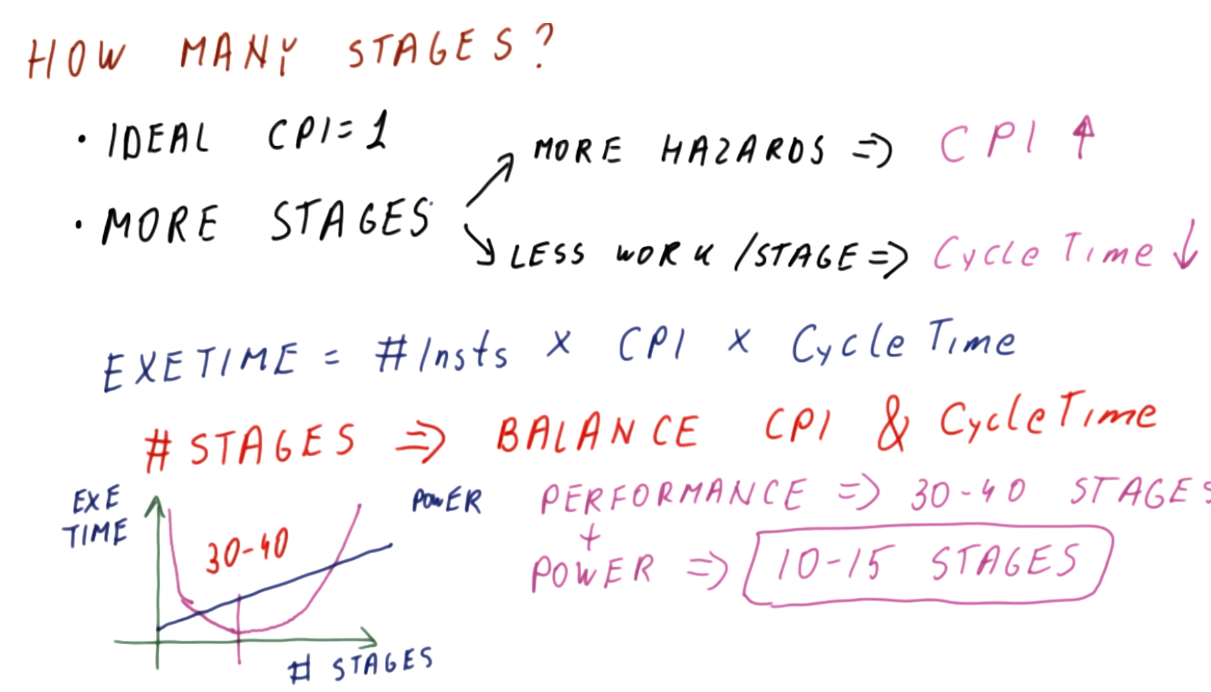 HOW MANY STAGES?
• IDEAL CPI=1
MORE HAZARDS => CPI ↑
• MORE STAGES
LESS WORK /STAGE => Cycle Time ↓
EXETIME = #Insts x CPI x Cycle Time
#STAGES => BALANCE CPI & Cycle Time
EXE TIME
30-40
POWER
# STAGES
PERFORMANCE => 30-40 STAGES
+
POWER => 10-15 STAGES